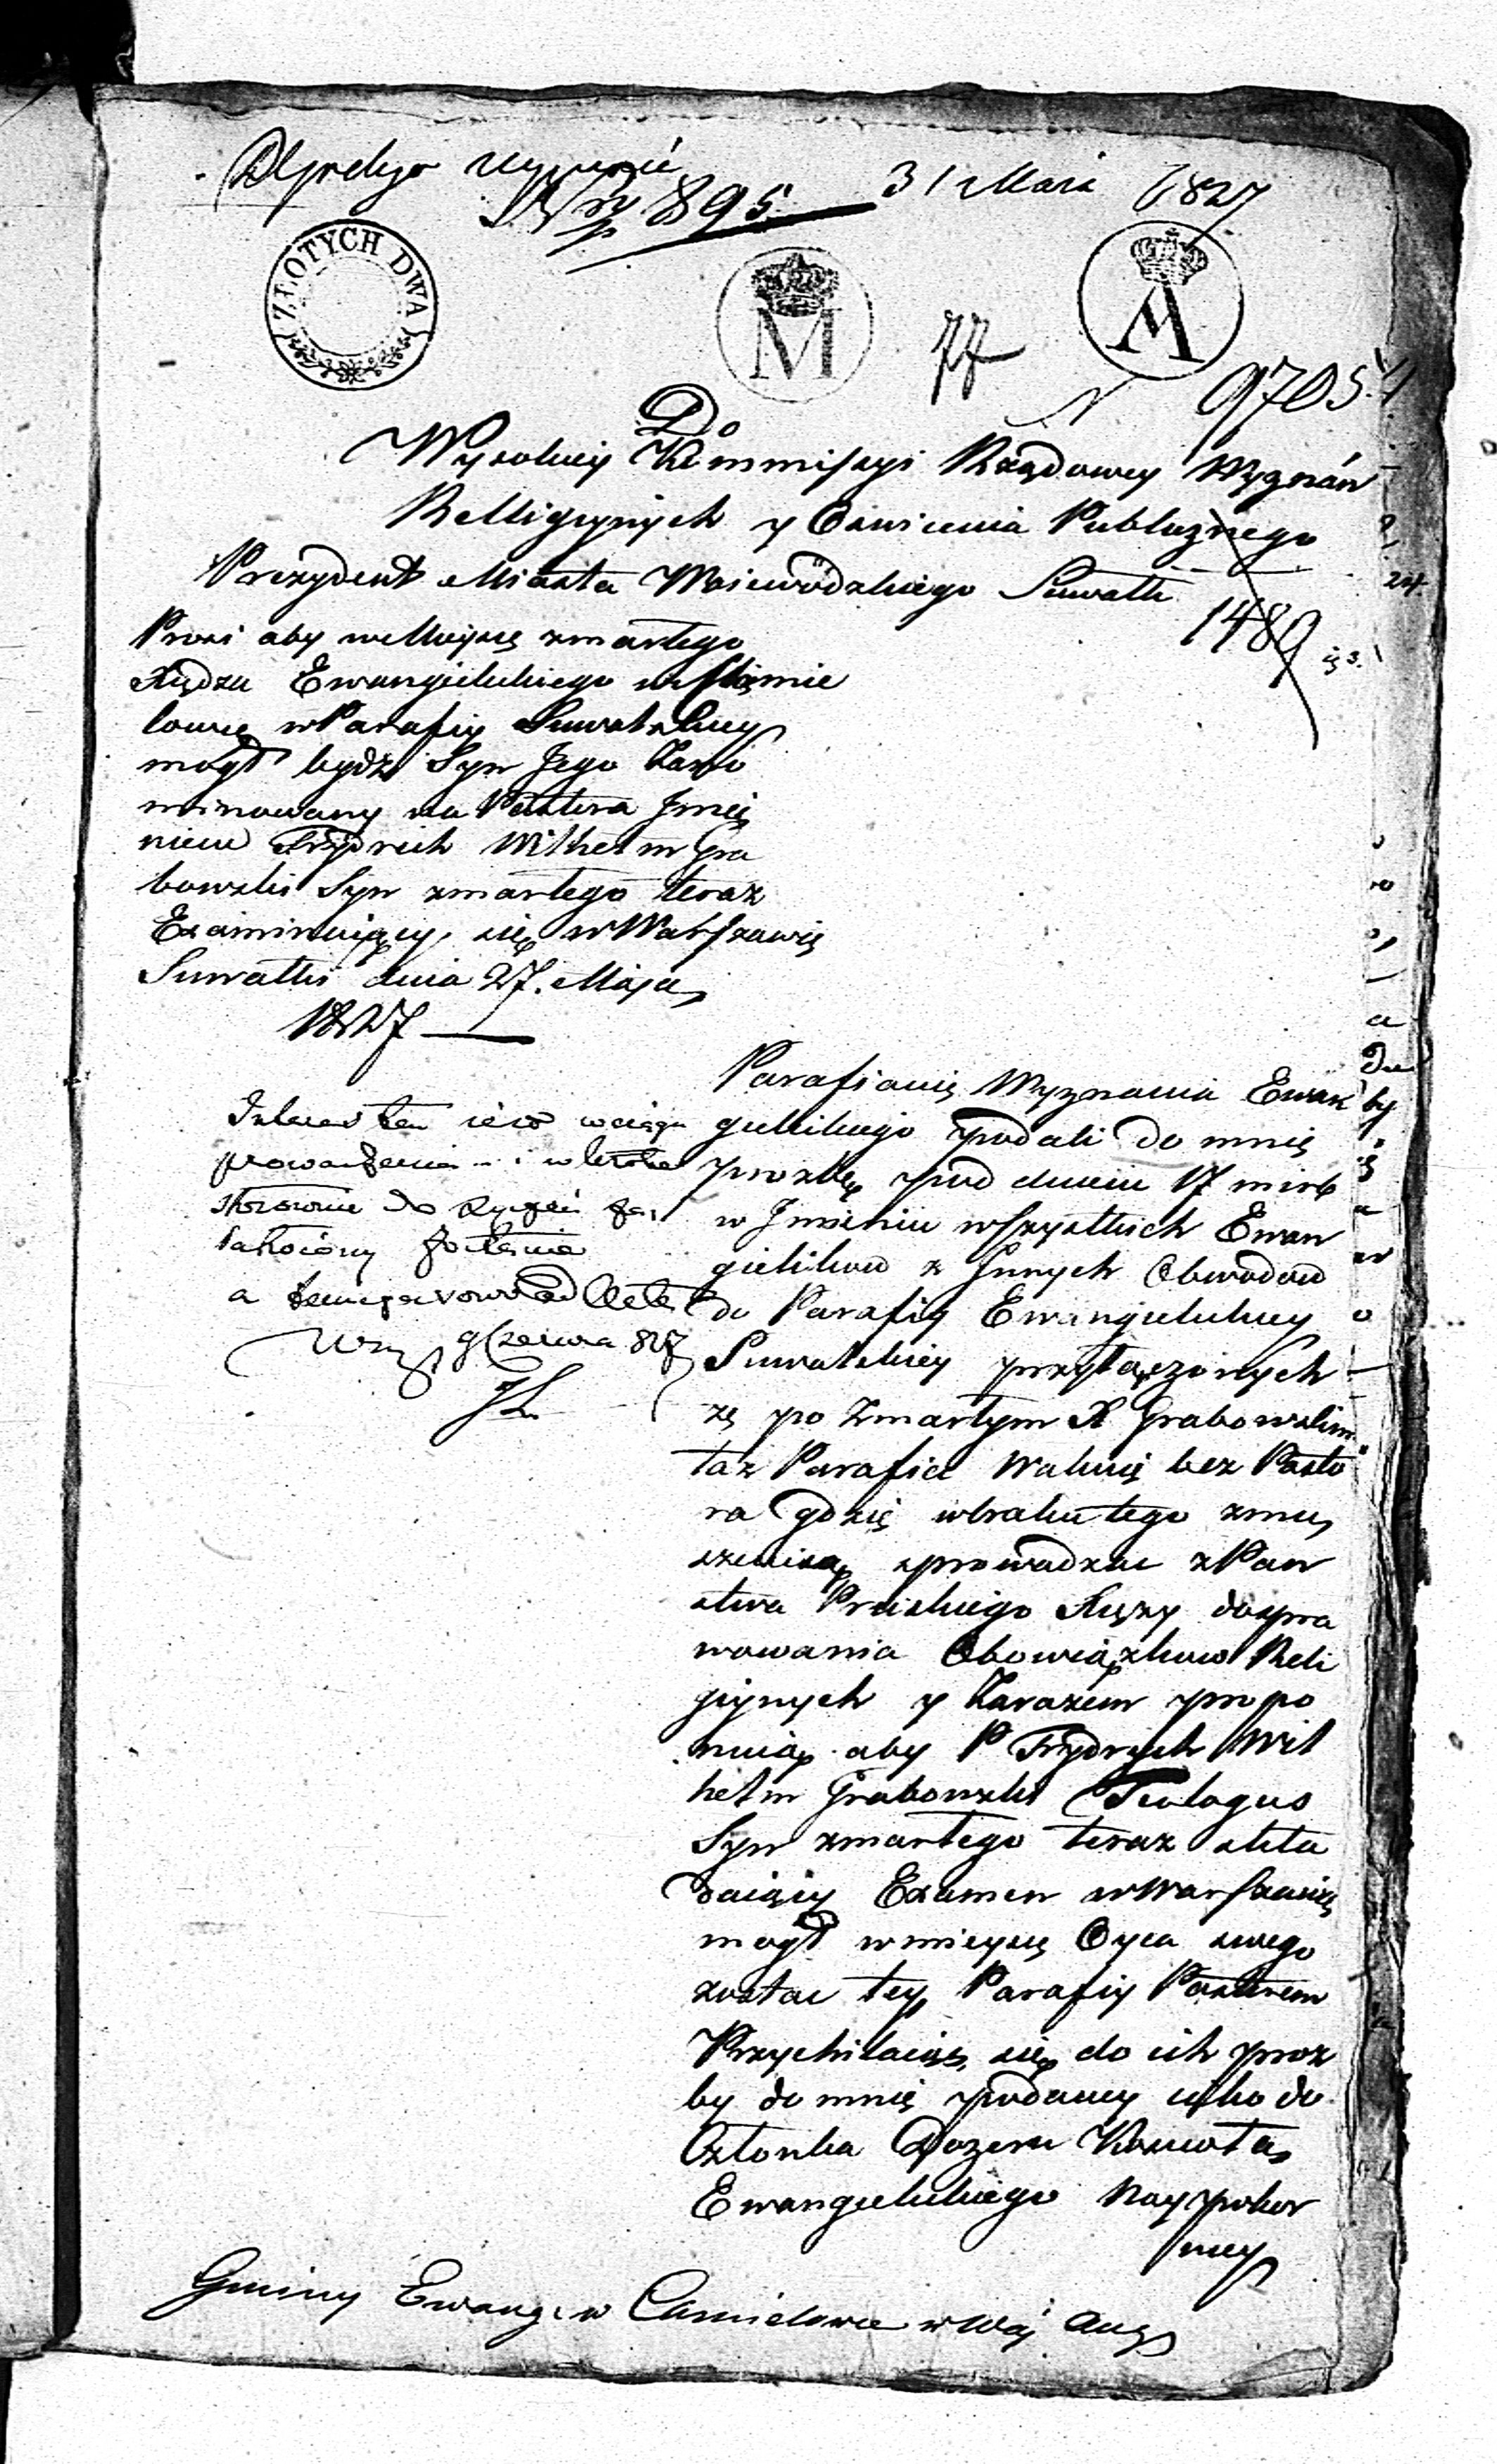 31 Maia 1827
Nr 895
ZŁOTYCH DWA
M
A
77
N 9705
Do
Wysokiey Kommissyi Rządowey Wyznań
Relligiynych y Oswicenia Publicznego
Prezydent Miasta Woiewodzkiego Suwałk
1489
Prosi aby na Mieysce zmarłego
Xiędza Ewangielickiego w Chmie
lowie w Parafiy Suwalskiey
mogł bydź Syn Jego Zano
minowany na Pastora Jmie
niem Frydrich Wilhelm Gra
bowski Syn zmarłego teraz
Examinuiący się w Warszawie
Suwałki dnia 27. Maja
1827
Parafianie Wyznania Ewan
gielickiego podali do mnie
prozbę pod dniem 17 mrb
w Jmieniu wszystkich Ewan
gielikow z Jnnych Obwodow
do Parafiy Ewangielickiey
Suwalskiey przyłączonych
ze po Zmarłym X Grabowskim
taz Parafia Wakuie bez Pasto
ra gdzie w braku tego zmu
szeni są sprowadzac z Pan
stwa Pruskiego Xięzy do spra
wowania Obowiązkow Reli
giynych y Zarazem propo
nuią aby P Frydrych Wil
helm Grabowski Teologus
Syn zmarłego teraz skła
daiący Examen w Warszawie
mogł w mieysce Oyca swego
zostac tey Parafiy Pastorem
Przychilaiąc się do ich proz
by do mnie podaney iako do
Członka Dozoru Koscioła
Ewangielickiego Naypokor
niey
Interes ten iest w ciągu
a
9 Czerwca 827
Gminy Ewang. w Chmielowie w Woj Aug